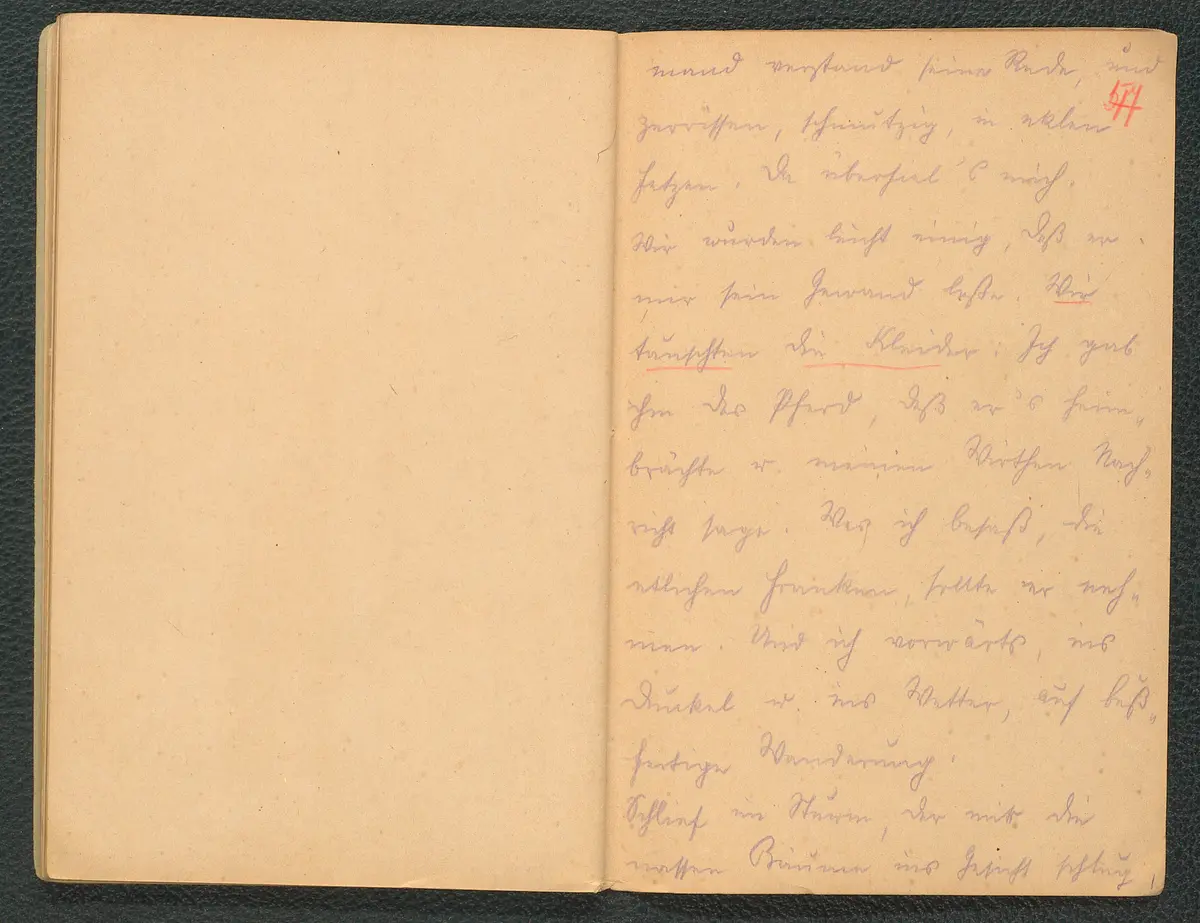 mand verstand seine Rede, und
zerrissen, schmutzig, in eklen
Fetzen. Da überfiel's mich.
Wir wurden leicht einig, daß er
mir sein Gewand laße. Wir
tauschten die Kleider: Ich gab
ihm das Pferd, daß er's heim„
brächte u. meinen Wirthen Nach„
richt sage. Was ich besaß, die
etlichen Franken, sollte er neh„
men. Und ich vorwärts, ins
Dunkel u. ins Wetter, auf buß„
fertige Wanderung.
Schlief im Sturm, der mir die
nassen Bäume ins Gesicht schlug,